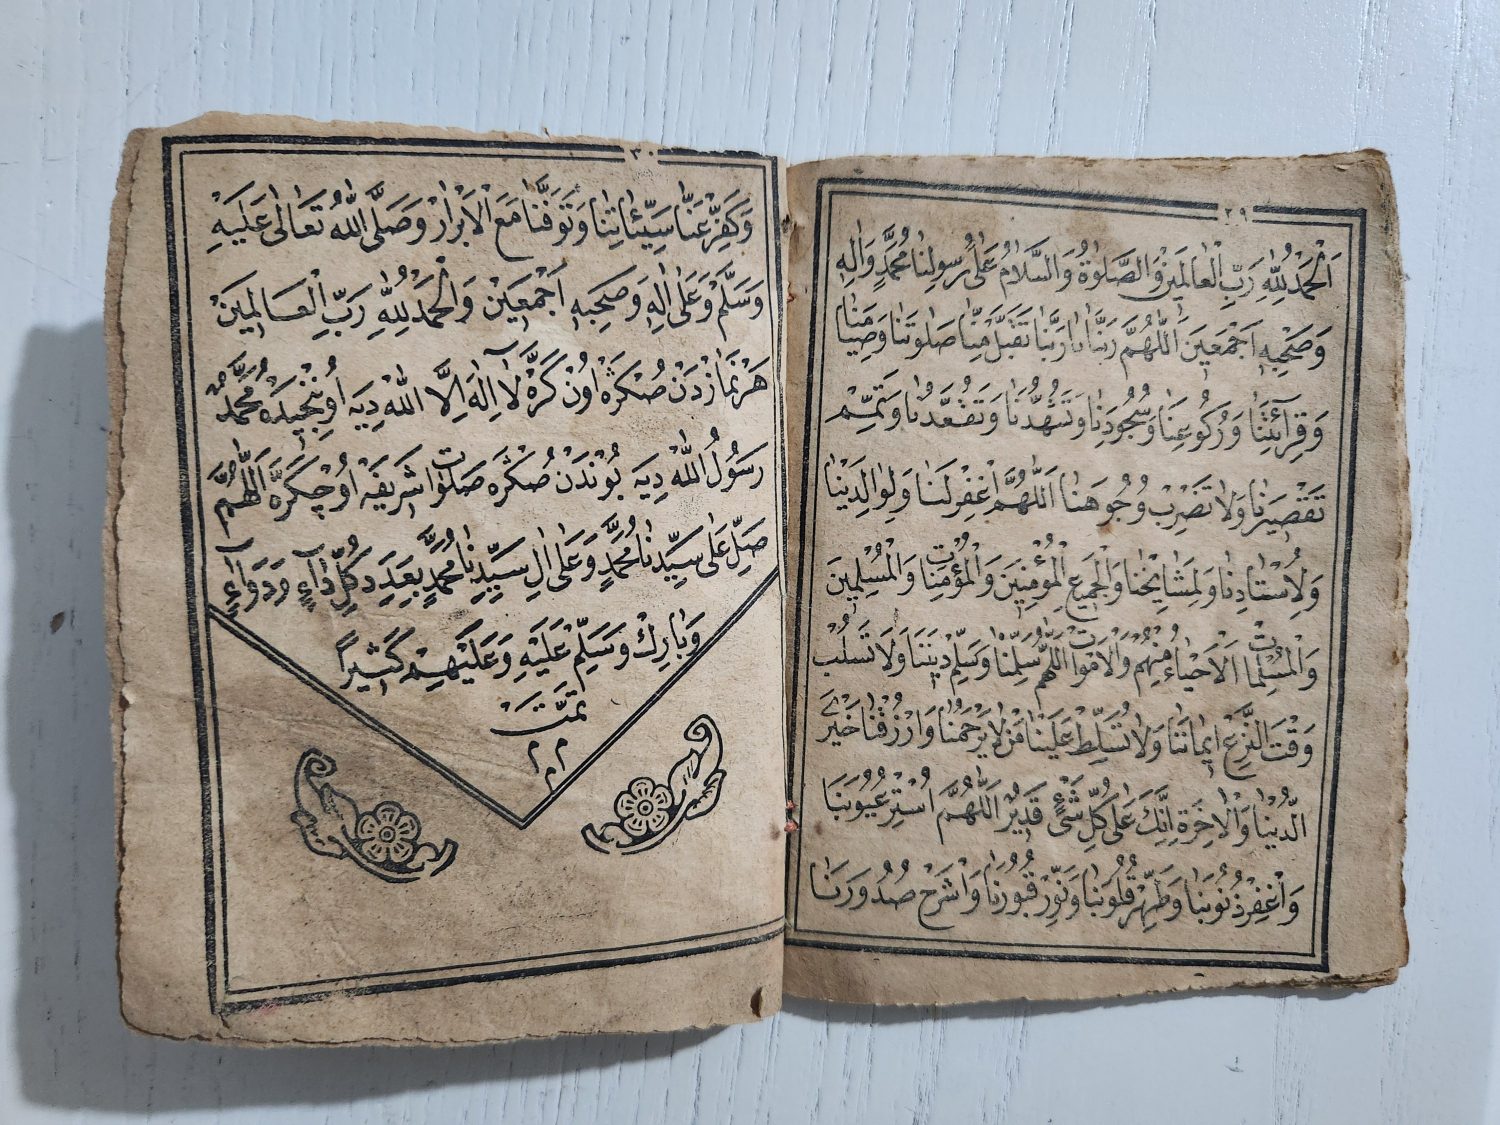 ٢٩
اَلْحَمْدُ لِلّٰهِ رَبِّ الْعَالَمِينَ وَالصَّلٰوةُ وَالسَّلَامُ عَلٰى رَسُولِنَا مُحَمَّدٍ وَاٰلِهِ
وَصَحْبِهِ اَجْمَعِينَ اَللّٰهُمَّ رَبَّنَا يَا رَبَّنَا تَقَبَّلْ مِنَّا صَلٰوتَنَا وَصِيَامَنَا
وَقِرَآئَتَنَا وَرُكُوعَنَا وَسُجُودَنَا وَتَشَهُّدَنَا وَتَقَعُّدَنَا وَتَمِّمْ
تَقْصِيرَنَا وَلَا تَضْرِبْ وُجُوهَنَا اَللّٰهُمَّ اغْفِرْ لَنَا وَلِوَالِدَيْنَا
وَلِاُسْتَادِنَا وَلِمَشَايِخِنَا وَلِجَمِيعِ الْمُؤْمِنِينَ وَالْمُؤْمِنَاتِ وَالْمُسْلِمِينَ
وَالْمُسْلِمَاتِ اَلْاَحْيَاءِ مِنْهُمْ وَالْاَمْوَاتِ اَللّٰهُمَّ سَلِّمْنَا وَسَلِّمْ دِينَنَا وَلَا تَسْلُبْ
وَقْتَ النَّزْعِ اِيمَانَنَا وَلَا تُسَلِّطْ عَلَيْنَا مَنْ لَا يَرْحَمُنَا وَارْزُقْنَا خَيْرَىِ
الدُّنْيَا وَالْاٰخِرَةِ اِنَّكَ عَلٰى كُلِّ شَىْءٍ قَدِيرٌ اَللّٰهُمَّ اسْتُرْ عُيُوبَنَا
وَاغْفِرْ ذُنُوبَنَا وَطَهِّرْ قُلُوبَنَا وَنَوِّرْ قُبُورَنَا وَاشْرَحْ صُدُورَنَا
٣٠
وَكَفِّرْ عَنَّا سَيِّئَاتِنَا وَتَوَفَّنَا مَعَ الْاَبْرَارِ وَصَلَّى اللّٰهُ تَعَالٰى عَلَيْهِ
وَسَلَّمَ وَعَلٰى اٰلِهِ وَصَحْبِهِ اَجْمَعِينَ وَالْحَمْدُ لِلّٰهِ رَبِّ الْعَالَمِينَ
هَرْ نَمَازْدَنْ صُكْرَه اُونْ كَرَّه لَآ اِلٰهَ اِلَّا اللّٰهْ دِيَه اُونْجِيدَه مُحَمَّدٌ
رَسُولُ اللّٰهْ دِيَه بُونْدَنْ صُكْرَه صَلَوَاتِ شَرِيفَه اُوچْ كَرَّه اَللّٰهُمَّ
صَلِّ عَلٰى سَيِّدِنَا مُحَمَّدٍ وَعَلٰى اٰلِ سَيِّدِنَا مُحَمَّدٍ بِعَدَدِ كُلِّ دَآءٍ وَدَوَآءٍ
وَبَارِكْ وَسَلِّمْ عَلَيْهِ وَعَلَيْهِمْ كَثِيرًا
تَمَّتْ
م م م